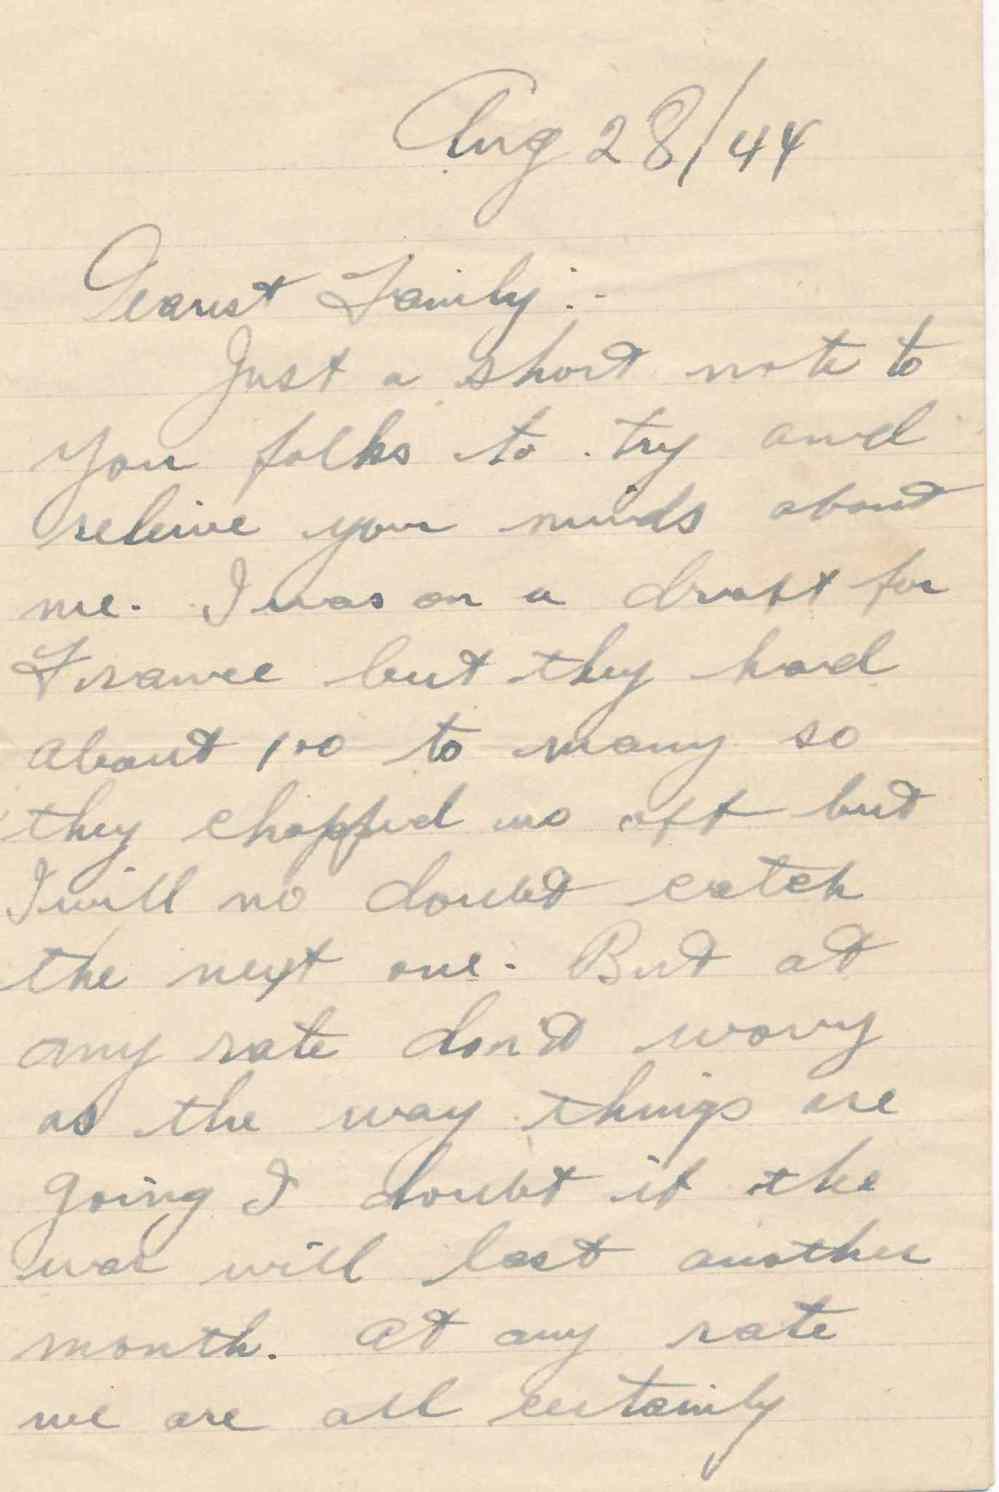 Aug 28/44
Dearest Family:-
Just a short note to
you folks to try and
releive your minds about
me. I was on a draft for
France but they had
about 100 to many so
they chopped us off but
I will no doubt catch
the next one. But at
any rate don't worry
as the way things are
going I doubt if the
war will last another
month. At any rate
we are all certainly